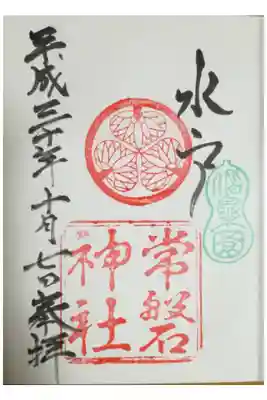 水戸
常磐
神社
平成三十年十月七日奉拝